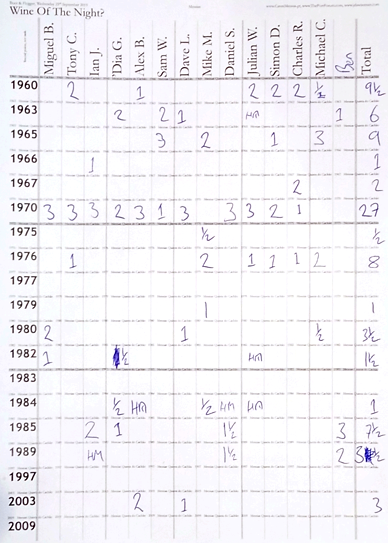 Wine Of The Night?
Miguel B. Tony C. Ian J. Tia G. Alex B. Sam W. Dave L. Mike M. Daniel S. Julian W. Simon D. Charles R. Michael C. Ben Total
1960 2 1 2 2 2 ½ 9½
1963 2 2 1 HM 1 6
1965 3 2 1 3 9
1966 1 1
1967 2 2
1970 3 3 3 2 3 1 3 3 3 2 1 27
1975 ½ ½
1976 1 2 1 1 1 2 8
1977
1979 1 1
1980 2 1 ½ 3½
1982 1 ½ HM 1½
1983
1984 ½ HM ½ HM HM 1
1985 2 1 1½ 3 7½
1989 HM 1½ 2 3½
1997
2003 2 1 3
2009